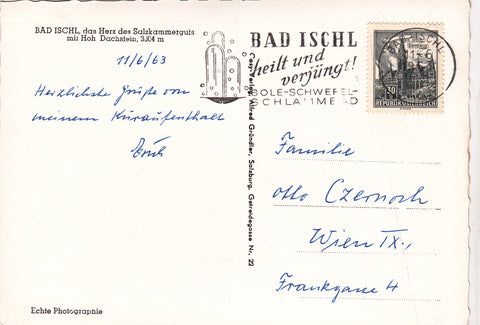 BAD ISCHL, das Herz des Salzkammerguts
mit Hoh Dachstein, 3004 m
11/6/63
Herzlichste Grüße von
meinem Kuraufenthalt
Erich
Echte Photographie
BAD ISCHL
heilt und
verjüngt!
SOLE-SCHWEFEL-
SCHLAMMBAD
BAD ISCHL
30
REPUBLIK ÖSTERREICH
Verlag Alfred Gründler, Salzburg, Getreidegasse Nr. 22
Familie
Otto Czernoch
Wien IX.,
Frankgasse 4